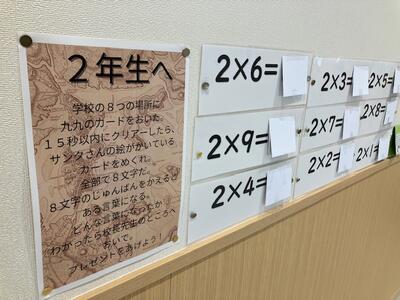 2年生へ
学校の8つの場所に
九九のカードをおいた。
15秒以内にクリアーしたら、
サンタさんの絵がかいている
カードをめくれ。
全部で8文字だ。
8文字のじゅんばんをかえると
ある言葉になる。
どんな言葉になったか
わかったら校長先生のところへ
おいで。
プレゼントをあげよう!
2×6=
2×3=
2×5=
2×9=
2×7=
2×8=
2×4=
2×2=
2×1=